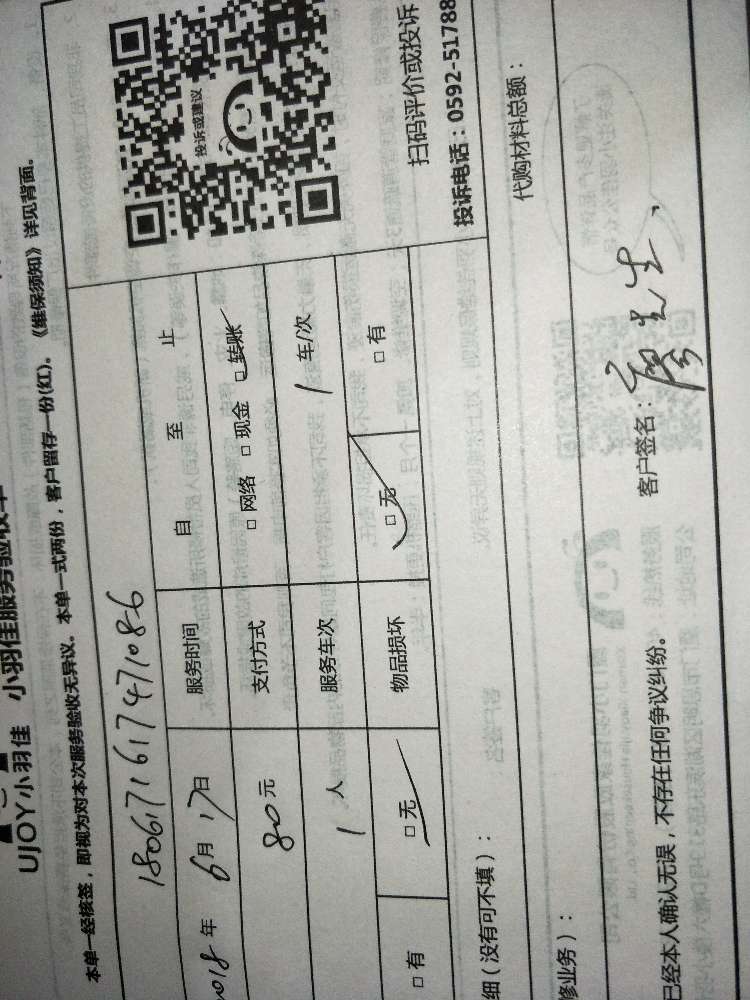 UJOY小羽佳 小羽佳服务验收单
本单一经核签，即视为对本次服务验收无异议。本单一式两份，客户留存一份(红)。《维保须知》详见背面。
1806171617471086
2018年6月17日 服务时间 自 至 止
80元 支付方式 □网络 □现金 □转账
1人 服务车次 1车/次
□有 □无 物品损坏 □无 □有
投诉或建议
扫码评价或投诉
投诉电话：0592-51788
细（没有可不填）：
代购材料总额：
修业务）：
已经本人确认无误，不存在任何争议纠纷。 客户签名：廖先生